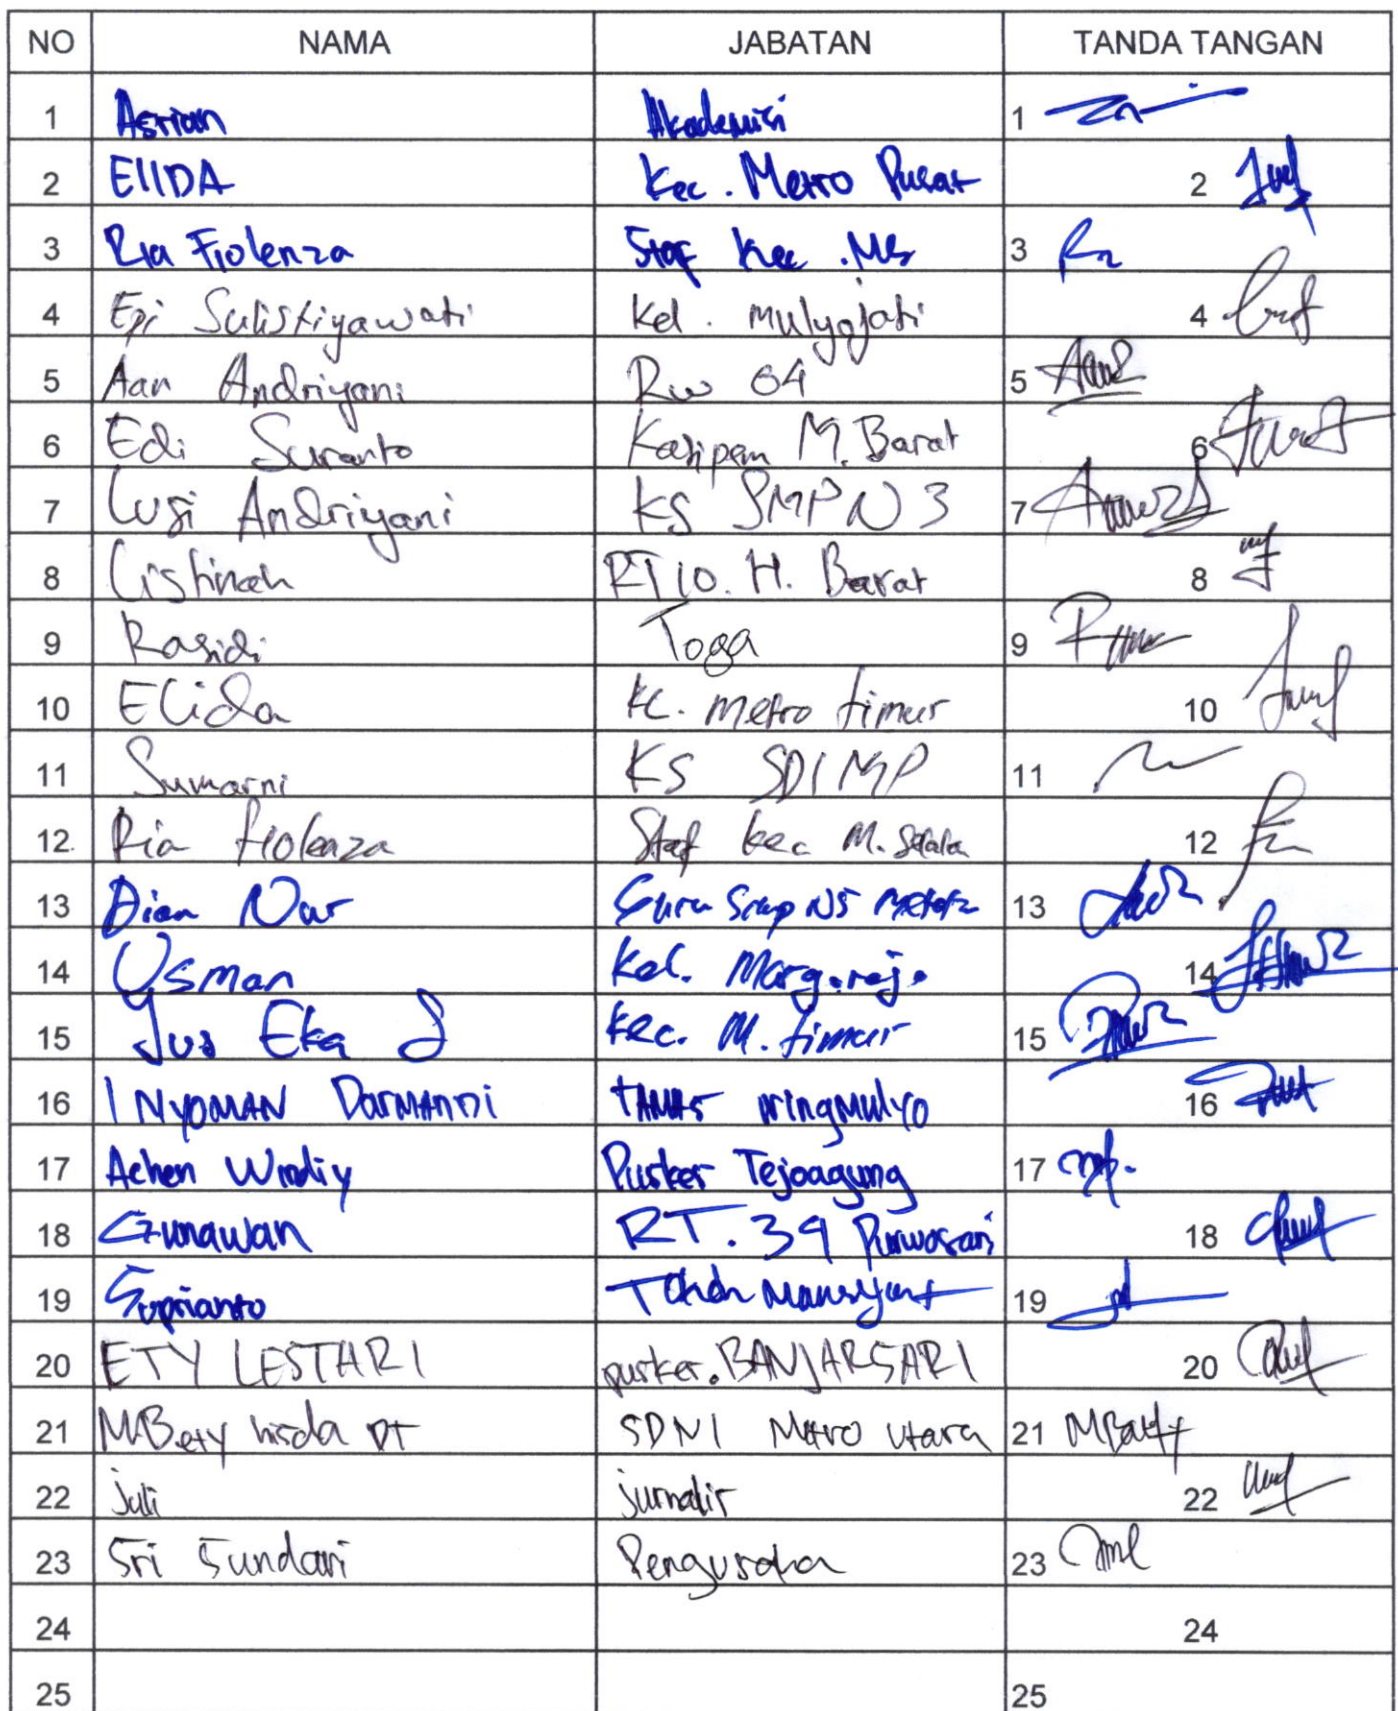 NO NAMA JABATAN TANDA TANGAN
1 Astian Akademisi 1
2 EllDA Kec. Metro Pusat 2
3 Ria Fiolenza Staf Kec. MS 3
4 Epi Sulistiyawati Kel. Mulyojati 4
5 Aan Andriyani Rw 04 5
6 Edi Suranto Kasipem M. Barat 6
7 Lusi Andriyani KS SMPN 3 7
8 Listinah RT 10. H. Barat 8
9 Rasidi Toga 9
10 Elida Kc. Metro timur 10
11 Sumarni KS SD1 MP 11
12 Ria fiolenza Staf Kec M. 12
13 Dian Nur Guru Smp N5 13
14 Usman Kel. Margorejo 14
15 Yus Eka S Kec. M. timur 15
16 I NYOMAN 16
17 Achen Windiy Pusker Tejoagung 17
18 Gunawan RT. 39 Purwosari 18
19 Suprianto Tokoh 19
20 ETY LESTARI pusker. BANJARSARI 20
21 MBety DT SDN1 Metro Utara 21 MBetty
22 Juli jurnalis 22
23 Sri Sundari Pengusaha 23
24 24
25 25